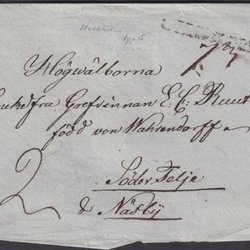 Stockholm
Högwälborna
Enkefru Grefvinnan E. C. Ruuth
född von Wahrendorff
Söder Telje
2
& Näsby